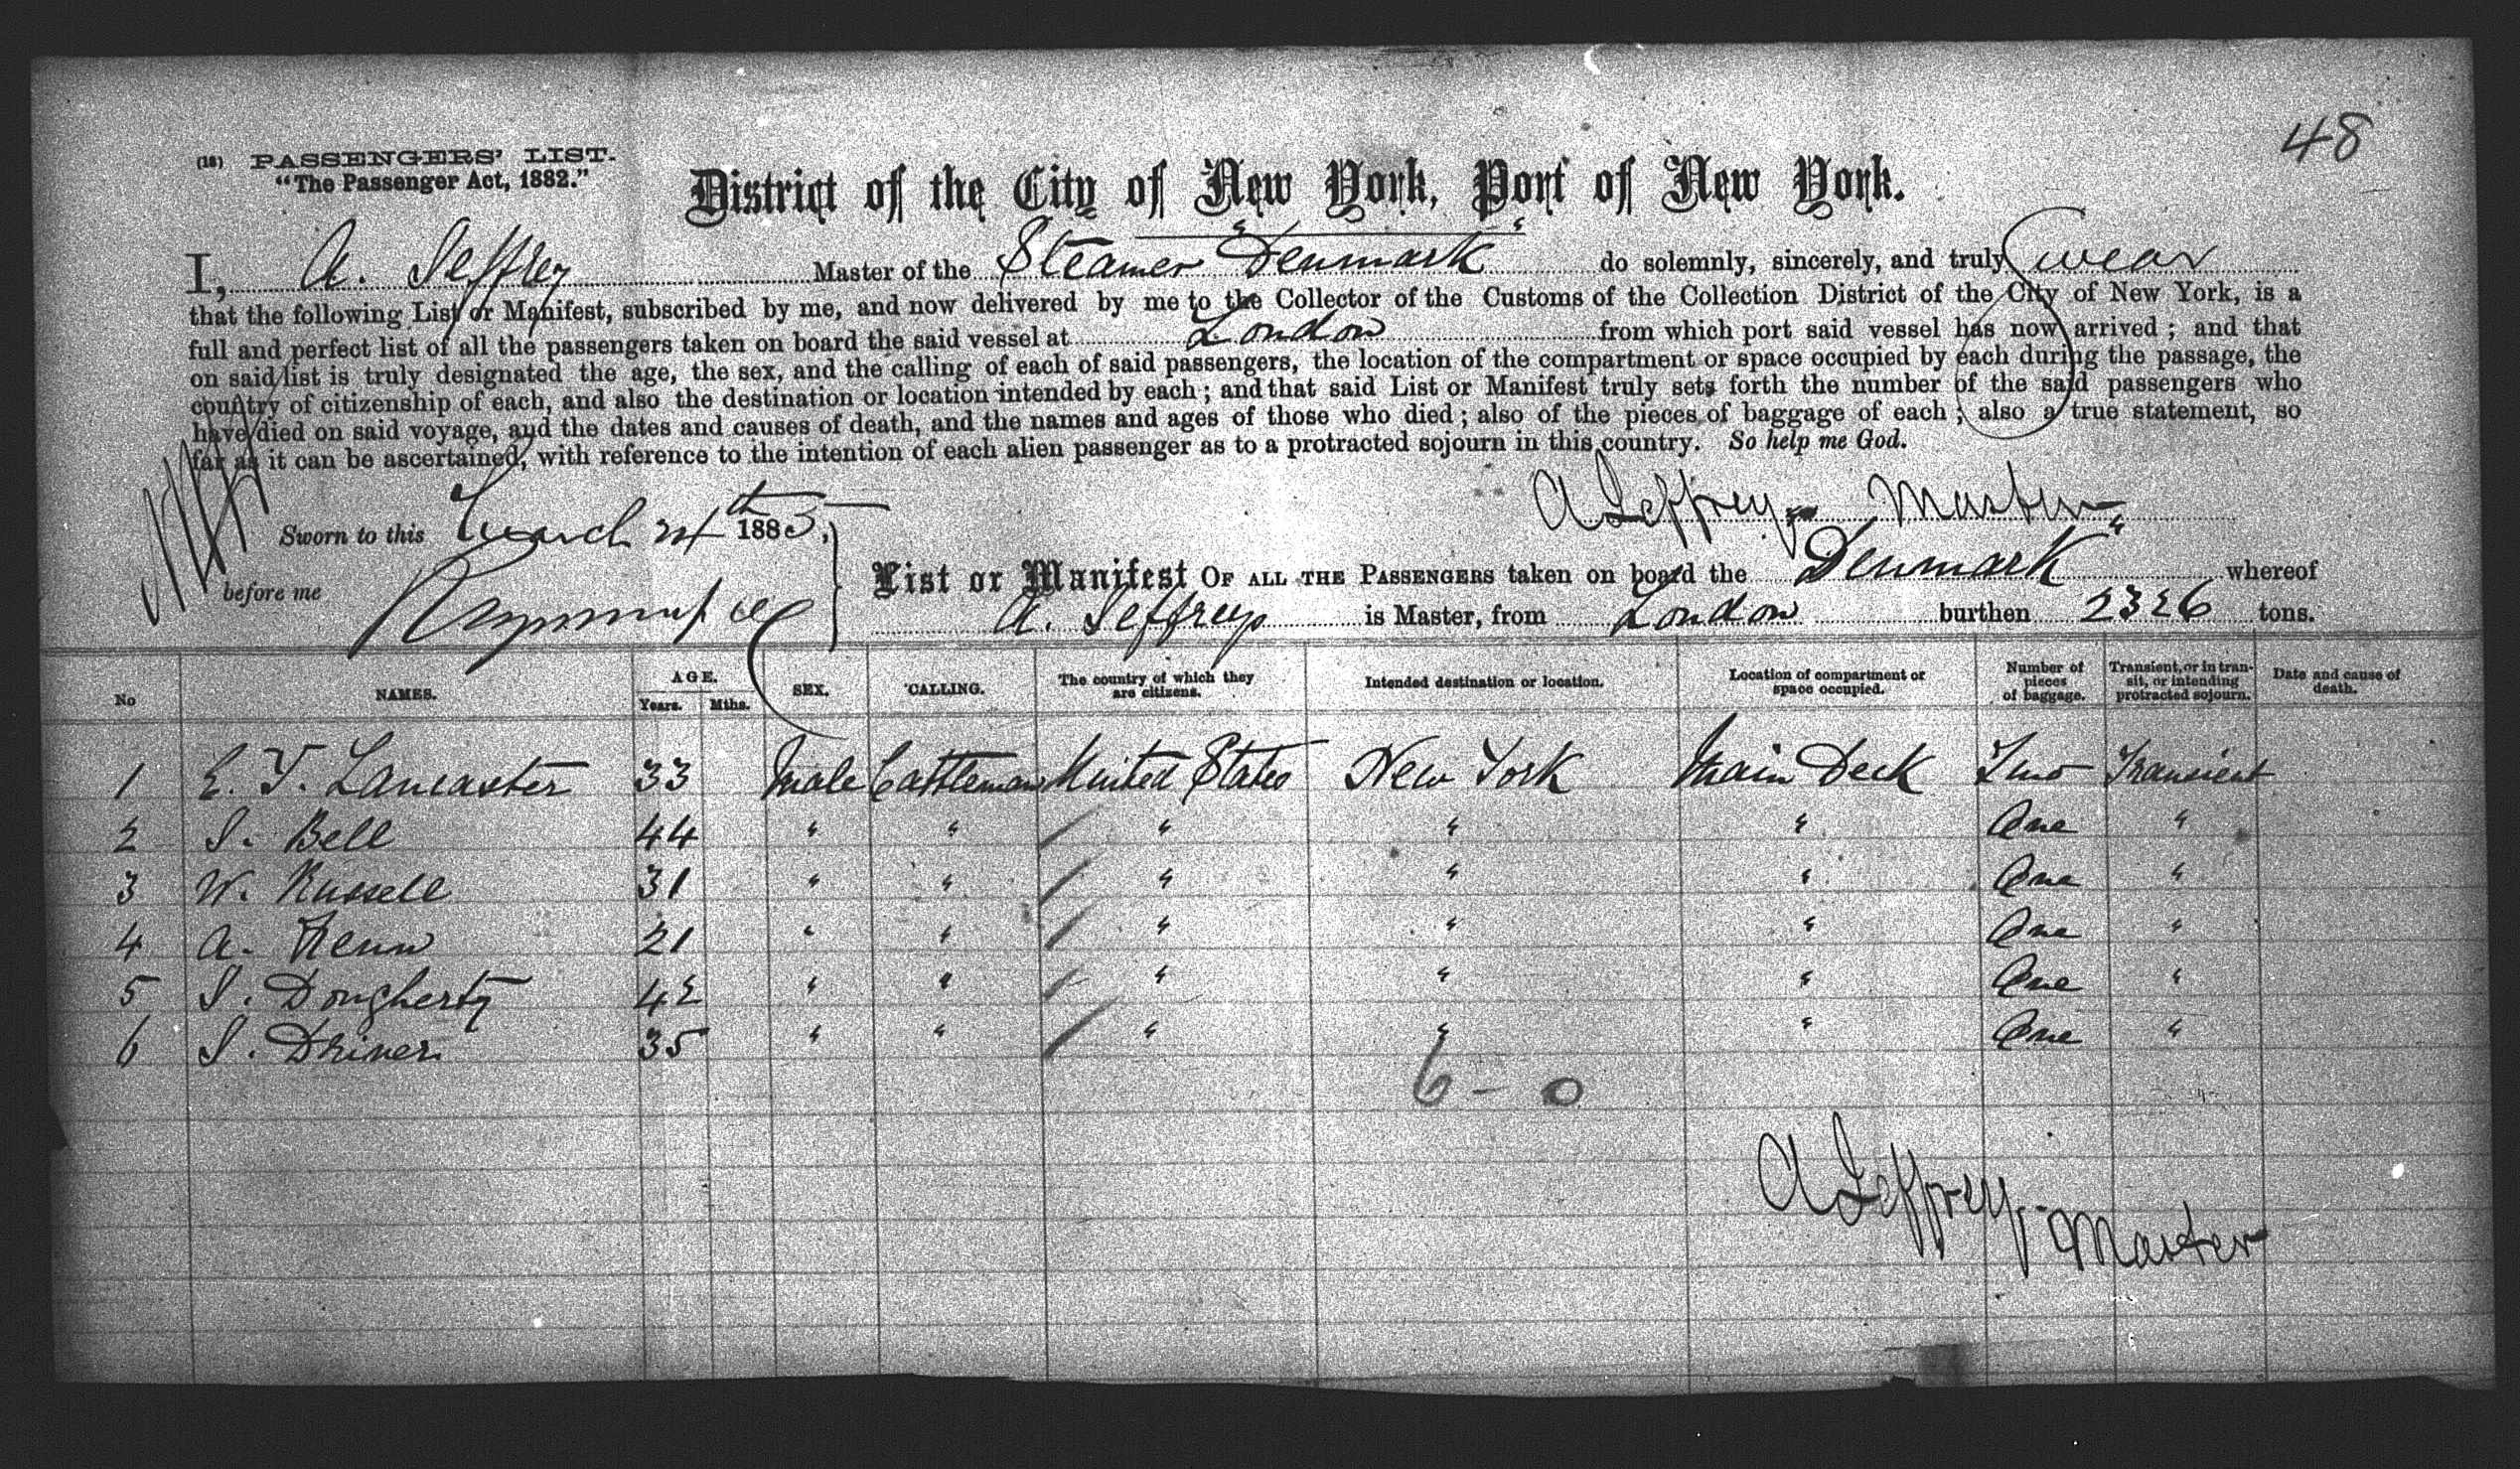 48
(18) PASSENGERS' LIST.
"The Passenger Act, 1882."
District of the City of New York, Port of New York.
I, A. Jeffrey Master of the Steamer "Denmark" do solemnly, sincerely, and truly Swear
that the following List or Manifest, subscribed by me, and now delivered by me to the Collector of the Customs of the Collection District of the City of New York, is a
full and perfect list of all the passengers taken on board the said vessel at London from which port said vessel has now arrived; and that
on said list is truly designated the age, the sex, and the calling of each of said passengers, the location of the compartment or space occupied by each during the passage, the
country of citizenship of each, and also the destination or location intended by each; and that said List or Manifest truly sets forth the number of the said passengers who
have died on said voyage, and the dates and causes of death, and the names and ages of those who died; also of the pieces of baggage of each; also a true statement, so
far as it can be ascertained, with reference to the intention of each alien passenger as to a protracted sojourn in this country. So help me God.
A Jeffrey Master
Sworn to this March 24th 1885,
before me
List or Manifest OF ALL THE PASSENGERS taken on board the Denmark" whereof
A. Jeffreys is Master, from London burthen 2326 tons.
No NAMES. AGE. Years. Mths. SEX. CALLING. The country of which they are citizens. Intended destination or location. Location of compartment or space occupied. Number of pieces of baggage. Transient, or in transit, or intending protracted sojourn. Date and cause of death.
1 E. T. Lancaster 33 Male Cattleman United States New York Main Deck Two Transient
2 S. Bell 44 " " " " " One "
3 W. Russell 31 " " " " " One "
4 A. Kenn 21 " " " " " One "
5 S. Dougherty 42 " " " " " One "
6 S. Driver 35 " " " " " One "
6 - 0
A Jeffrey, Master